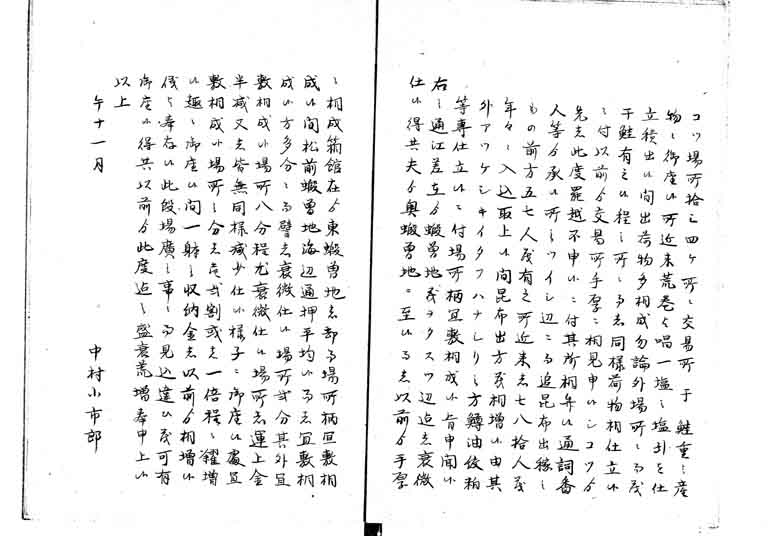 コツ場所拾三四ケ所ニ交易所于鮭重ニ産
物ニ御座候所近来荒巻与唱一塩ニ塩引を仕
立積出候間出荷物多相成勿論外場所ニ而茂
干鮭有之候程之所ニ而者同様荷物相仕立候
ニ付以前ゟ交易所手厚ニ相見申候シコツゟ
先者此度罷越不申候ニ付其所相弁候通詞番
人等ゟ承候所ニツイシ辺ニ而追昆布出稼之
もの前方五七人茂有之所近来者七八拾人茂
年々ニ入込取上候間昆布出方茂相増候由其
外アツケシキイタフハナレリニ方鱒油後粕
等専仕立候ニ付場所柄宜敷相成候旨申聞候
右之通江差在ゟ蝦夷地茂ヲタスツ辺迄者衰微
仕候得共夫ゟ奥蝦夷地ニ至候而者以前ゟ手厚
ニ相成箱館在ゟ東蝦夷地者都而場所柄宜敷相
成候間松前蝦夷地海辺通押平均候而者宜敷相
成候方多分ニ而譬者衰微仕候場所弐分其外宜
敷相成候場所八分程尤衰微仕候場所者運上金
半減又者皆無同様減少仕候様子ニ御座候處宜
敷相成候場所之分者壱弐割或者一倍程ニ糴増
候趣ニ御座候間一躰之収納金者以前ゟ相増候
儀与奉存候此段場廣之事ニ而見込違候茂可有
御座候得共以前ゟ此度迄之盛衰荒増奉申上候
以上
午十一月
中村小市郎